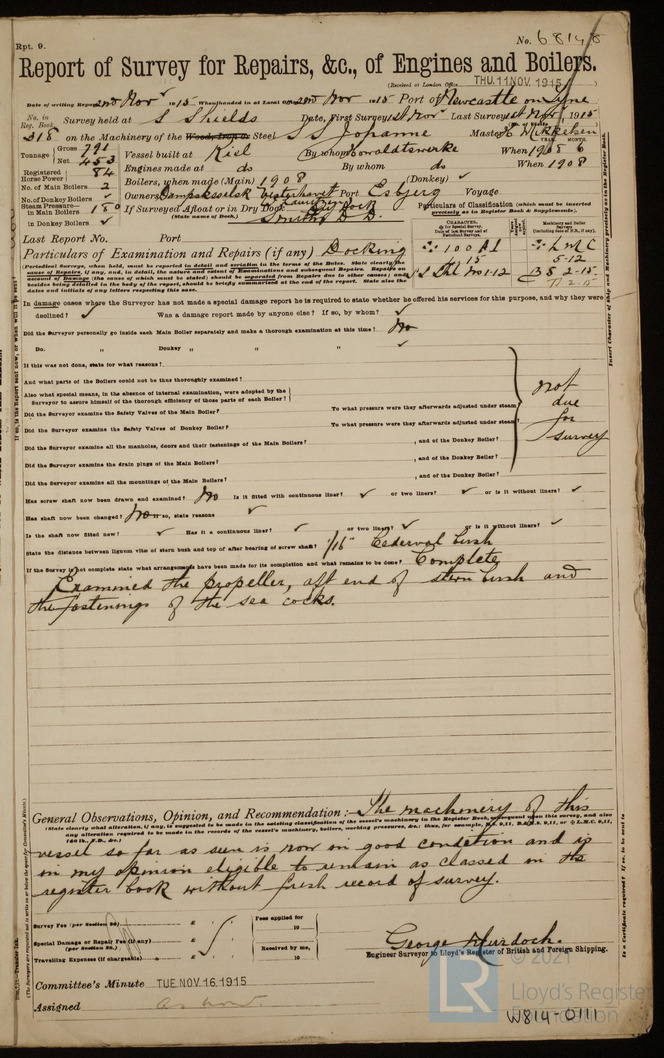 Rpt. 9.
No. 68148
Report of Survey for Repairs, &c., of Engines and Boilers.
(Received at London Office THU. 11 NOV. 1915)
Date of writing Report 2nd Nov 1915 When handed in at Local Office 2nd Nov 1915 Port of Newcastle on Tyne
No. in Reg. Book Survey held at S Shields Date, First Survey 1st Nov Last Survey 1st Nov 1915
318 on the Machinery of the Wood, Iron or Steel SS Johanne Master
Tonnage Gross 791 Net 453 Vessel built at Kiel By whom Howaldtswerke When 1908 6
Registered Horse Power 84 Engines made at do By whom do When 1908
No. of Main Boilers 2 Boilers, when made (Main) 1908 (Donkey) ✓
No. of Donkey Boilers ✓ Owners Dampskselsk Vesterhavet Port Esbjerg Voyage
Steam Pressure in Main Boilers 180 If Surveyed Afloat or in Dry Dock Dry Dock
in Donkey Boilers ✓ (State name of Dock.) Smiths D D.
Particulars of Classification (which must be inserted precisely as in Register Book & Supplements).
Last Report No. Port
Particulars of Examination and Repairs (if any) Docking
100 A1
LMC 5-12
BS 2-15
In damage cases where the Surveyor has not made a special damage report he is required to state whether he offered his services for this purpose, and why they were
declined? ✓ Was a damage report made by anyone else? If so, by whom? ✓
Did the Surveyor personally go inside each Main Boiler separately and make a thorough examination at this time? No
Do. „ Donkey „ „ „ ✓
If this was not done, state for what reasons?
And what parts of the Boilers could not be thus thoroughly examined?
Also what special means, in the absence of internal examination, were adopted by the
Surveyor to assure himself of the thorough efficiency of those parts of each Boiler?
Did the Surveyor examine the Safety Valves of the Main Boiler? To what pressure were they afterwards adjusted under steam?
Did the Surveyor examine the Safety Valves of Donkey Boiler? To what pressure were they afterwards adjusted under steam?
Did the Surveyor examine all the manholes, doors and their fastenings of the Main Boilers? , and of the Donkey Boiler?
Did the Surveyor examine the drain plugs of the Main Boilers? , and of the Donkey Boiler?
Did the Surveyor examine all the mountings of the Main Boilers? , and of the Donkey Boiler?
not due for survey
Has screw shaft now been drawn and examined? No Is it fitted with continuous liner? ✓ or two liners? ✓ or is it without liners? ✓
Has shaft now been changed? No If so, state reasons ✓
Is the shaft now fitted new? ✓ Has it a continuous liner? ✓ or two liners? ✓ or is it without liners? ✓
State the distance between lignum vitæ of stern bush and top of after bearing of screw shaft? 1/16" Cedervall bush
If the Survey is not complete state what arrangements have been made for its completion and what remains to be done? Complete
Examined the propeller, aft end of stern bush and
the fastenings of the sea cocks.
General Observations, Opinion, and Recommendation :— The machinery of this
vessel so far as seen is now in good condition and is
in my opinion eligible to remain as classed in the
register book without fresh record of survey.
Survey Fee (per Section 29) £ Fees applied for
Special Damage or Repair Fee (if any) (per Section 28.) £ 19
Travelling Expenses (if chargeable) £ Received by me, 19
George Murdoch.
Engineer Surveyor to Lloyd's Register of British and Foreign Shipping.
Committee's Minute TUE. NOV. 16. 1915
Assigned as now
© 2021
LR
Lloyd's Register
Foundation
W814-0111